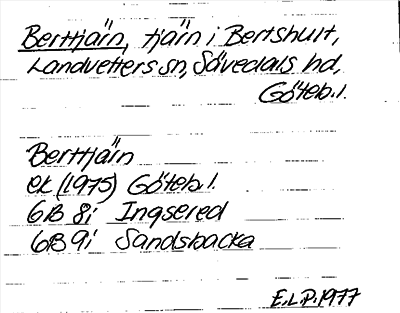 Berttjärn, tjärn i Bertshult,
Landvetters sn, Sävedals hd,
Göteb.l.
Berttjärn
ek (1975) Göteb.l.
6B 8i Ingsered
6B 9i Sandsbacka
E.L.P. 1977